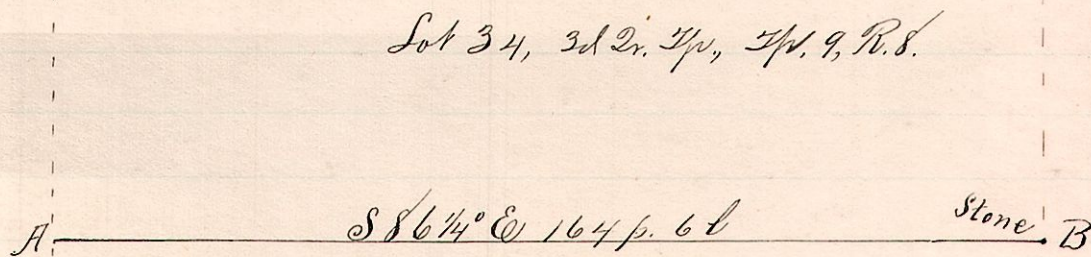 Lot 34, 3d Qr. Tp., Tp. 9, R. 8.
A S 86 1/4° E 164 p. 6 l Stone B